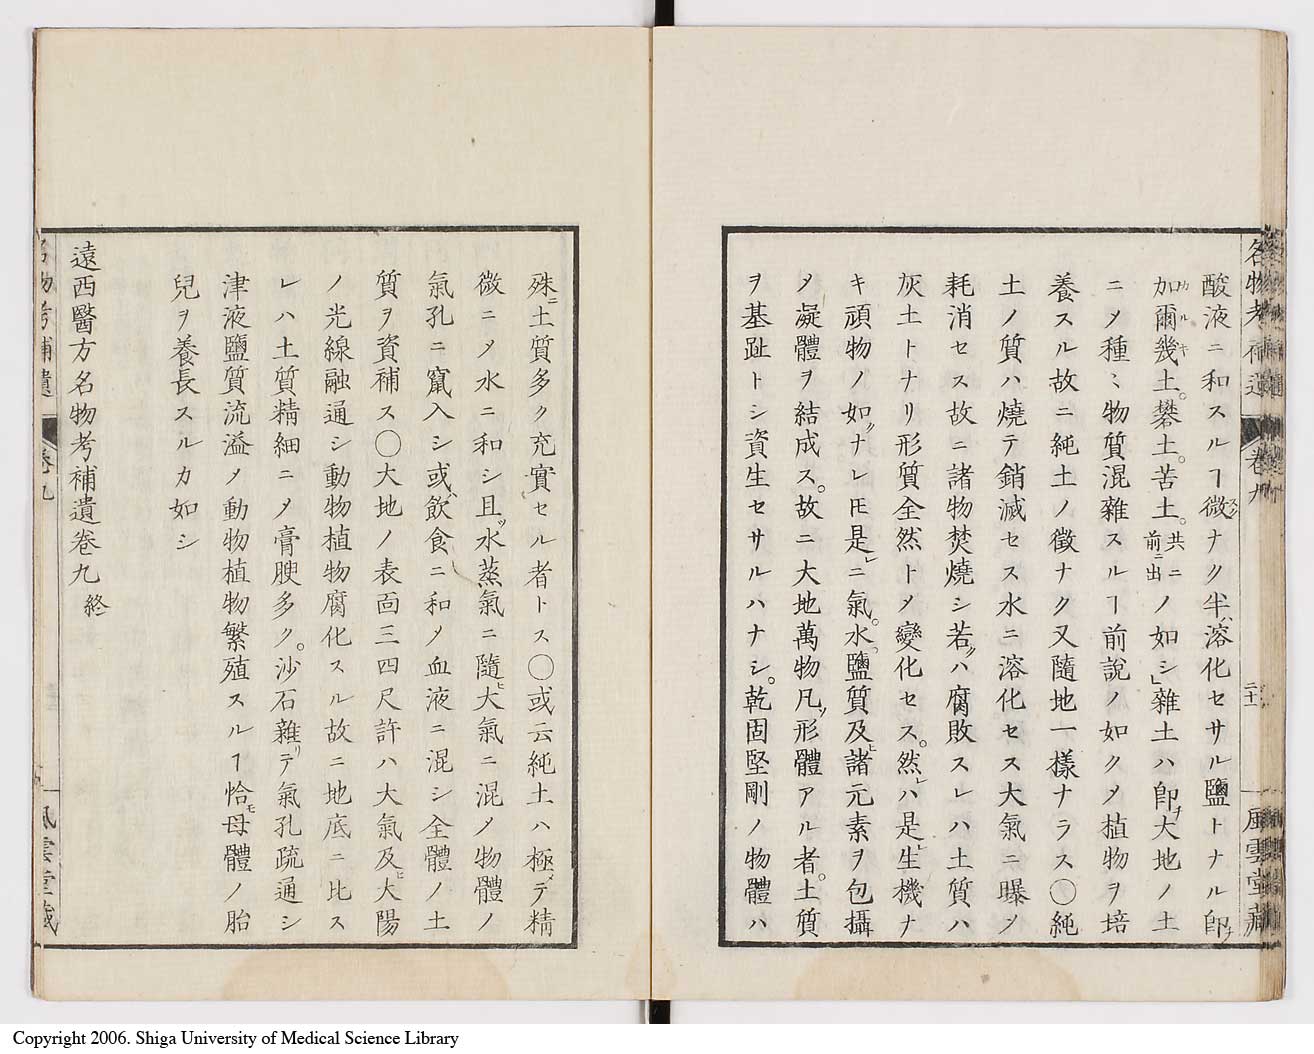 名物考補遺 卷九 二十一 風雲堂藏
酸液ニ和スルヿ微ナク半溶化セサル鹽トナル卽
加爾幾土。礬土。苦土。共ニ前ニ出ノ如シ」雜土ハ卽大地ノ土
ニメ種〻物質混雜スルヿ前說ノ如クメ植物ヲ培
養スル故ニ純土ノ徵ナク又隨地一樣ナラス〇純
土ノ質ハ燒テ銷滅セス水ニ溶化セス大氣ニ曝メ
耗消セス故ニ諸物焚燒シ若ハ腐敗スレハ土質ハ
灰土トナリ形質全然トメ變化セス。然ハ是生機ナ
キ頑物ノ如ナレ𪜈是ニ氣。水。鹽質及諸元素ヲ包攝
メ凝體ヲ結成ス。故ニ大地萬物凡形體アル者。土質
ヲ基趾トシ資生セサルハナシ。乾固堅剛ノ物體ハ
殊ニ土質多ク充實セル者トス〇或云純土ハ極テ精
微ニメ水ニ和シ且水蒸氣ニ隨大氣ニ混メ物體ノ
氣孔ニ竄入シ或飮食ニ和メ血液ニ混シ全體ノ土
質ヲ資補ス〇大地ノ表面三四尺許ハ大氣及大陽
ノ光線融通シ動物植物腐化スル故ニ地底ニ比ス
レハ土質精細ニメ膏腴多ク。沙石雜テ氣孔疏通シ
津液鹽質流溢メ動物植物繁殖スルヿ恰母體ノ胎
兒ヲ養長スルカ如シ
遠西醫方名物考補遺卷九 終
名物考補遺 卷九 風雲堂藏
Copyright 2006. Shiga University of Medical Science Library